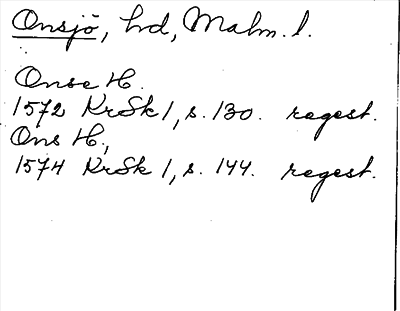 Onsjö, hd, Malm. l.
Onse H.
1572 KrSk 1, s. 130. regest.
Ons H.,
1574 KrSk 1, s. 144. regest.